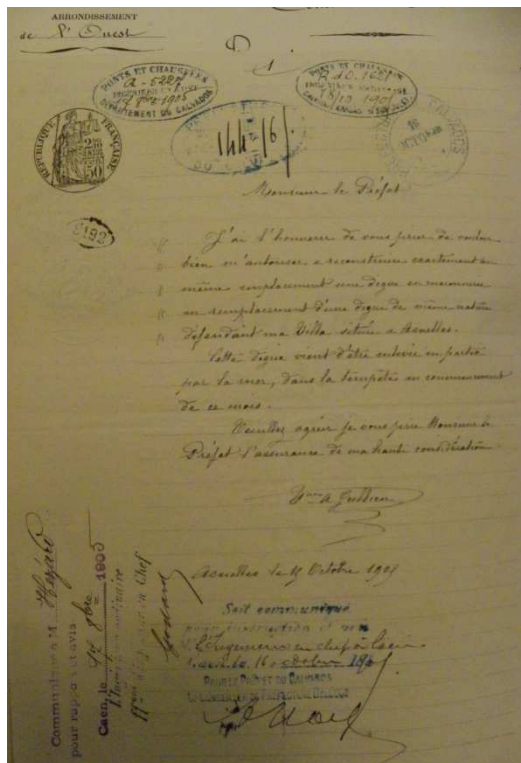 ARRONDISSEMENT
de l'Ouest
1
PONTS ET CHAUSSÉES
A - 5227
1905
DÉPARTEMENT DU CALVADOS
PONTS ET CHAUSSÉES
18/10 1905
144-16
RÉPUBLIQUE FRANÇAISE
2
50
8192
Monsieur le Préfet
J'ai l'honneur de vous prier de vouloir
bien m'autoriser a reconstruire exactement au
même emplacement une digue en maconnerie
en remplacement d'une digue de même nature
défendant ma Villa située a Asnelles.
Cette digue vient d'être enlevée en partie
par la mer, dans la tempête au commencement
de ce mois.
Veuillez agréer je vous prie Monsieur le
Préfet l'assurance de ma haute considération
Asnelles le 15 Octobre 1905
Soit communiqué
pour instruction et avis
l'Ingénieur en chef
Caen, le 16 octobre 190
POUR LE PRÉFET DU CALVADOS
LE CONSEILLER DE PRÉFECTURE DÉLÉGUÉ
Communiqué à M. Hézard
pour rapport et avis
Caen, le 17 8bre 1905
L'Ingénieur ordinaire